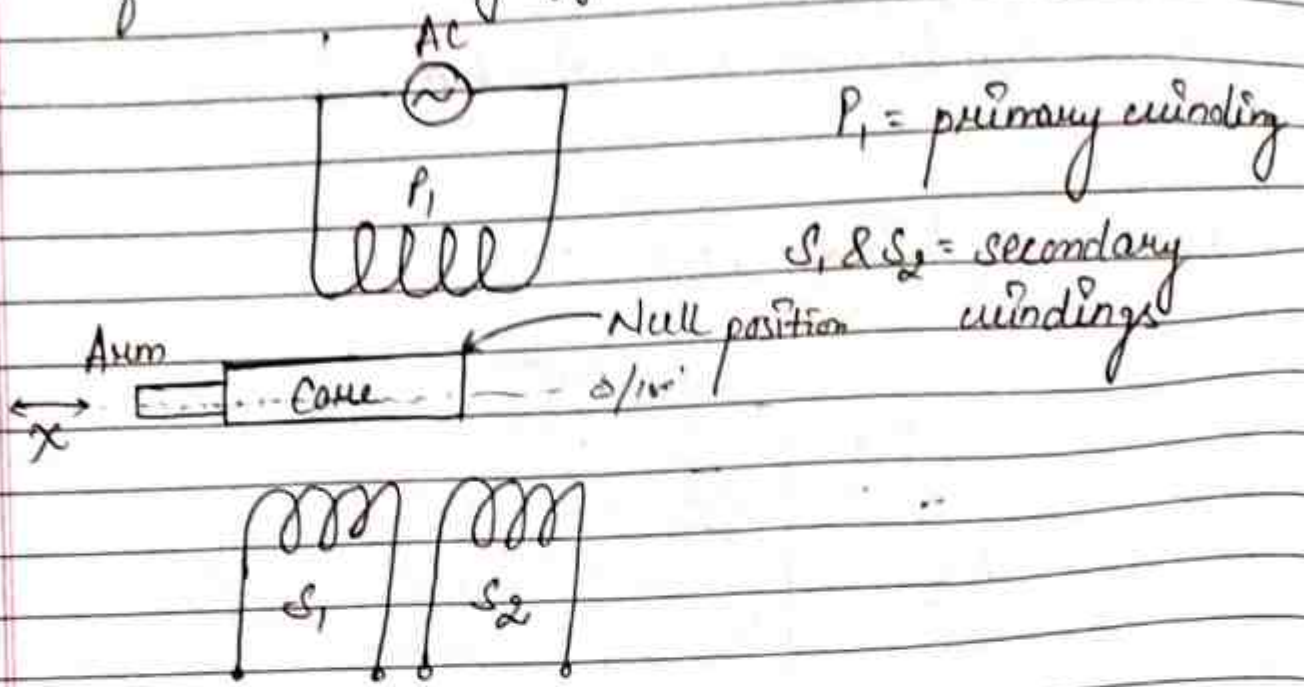 AC
P₁ = primary winding
P₁
S₁ & S₂ = secondary
windings
Null position
Arm
Core
x
S₁
S₂